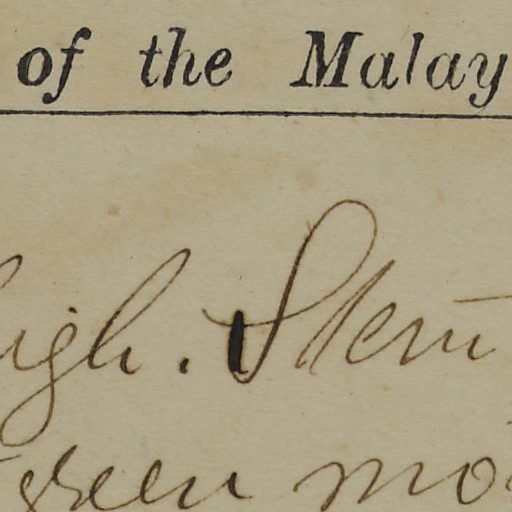 of the Malay
igh. Stem
green mo